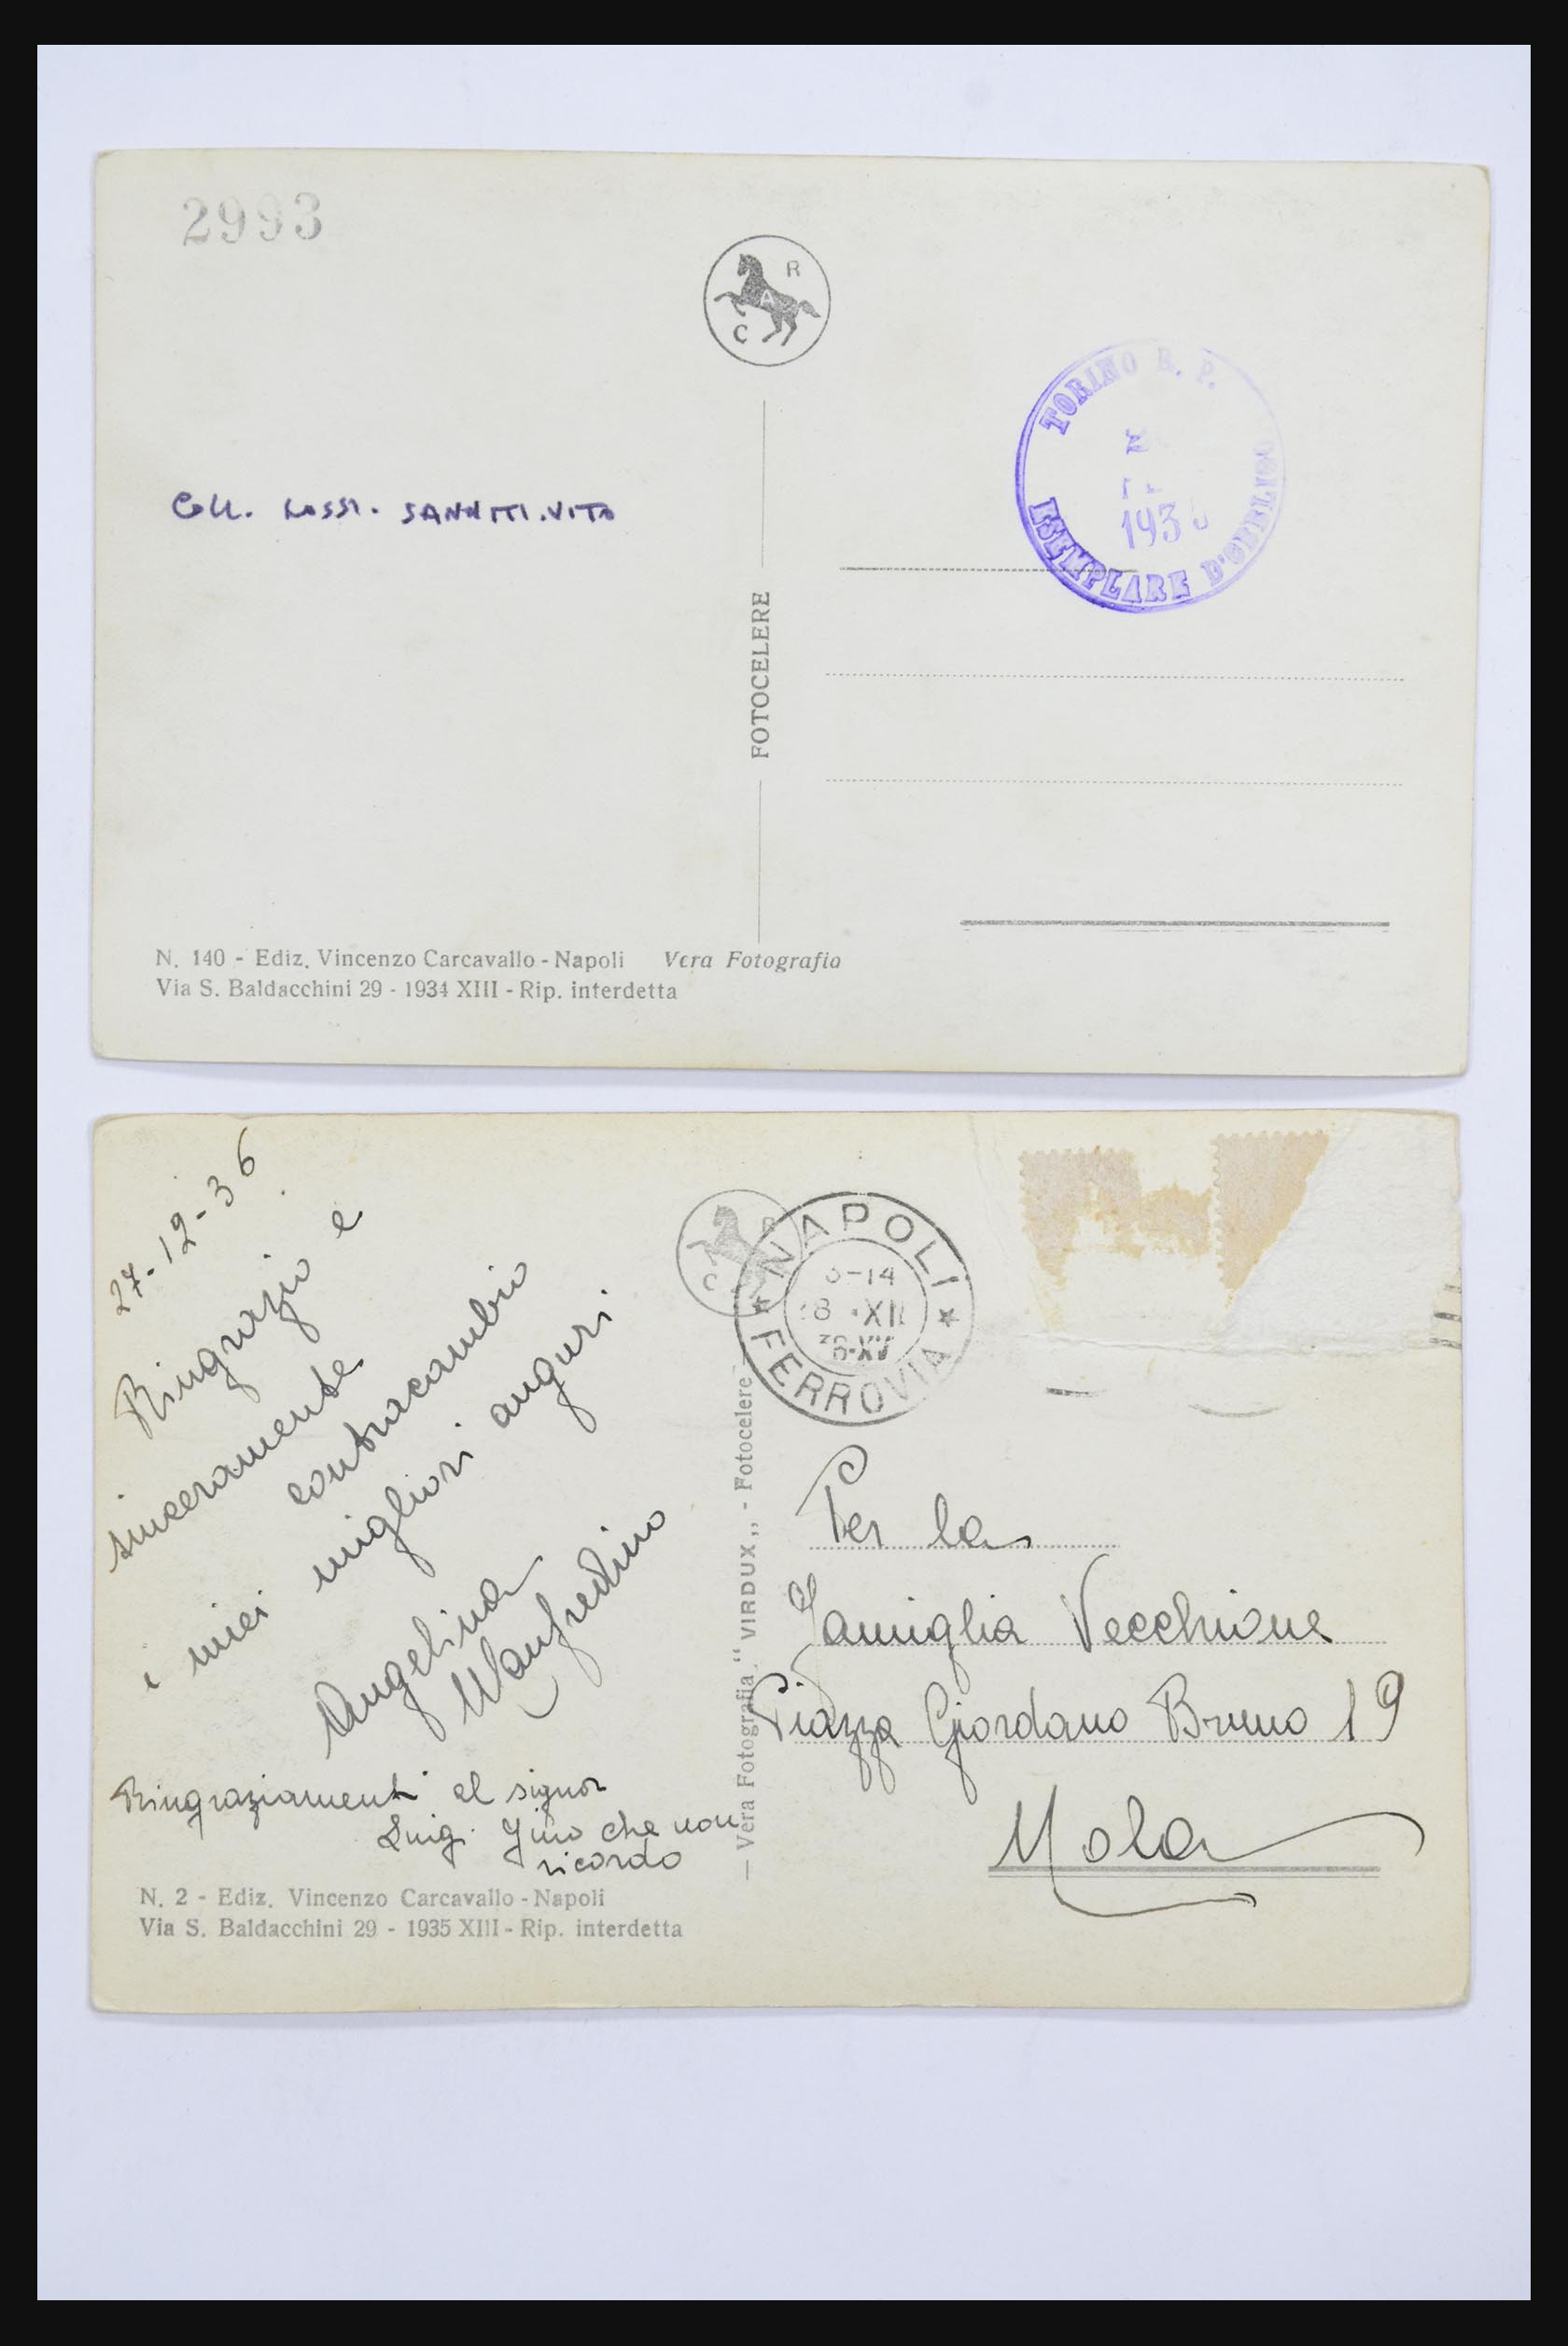 2993
R
A
C
TORINO R. P.
193
ESEMPLARE D'OBBLIGO
Coll. SANNITI.VITO
FOTOCELERE
N. 140 - Ediz. Vincenzo Carcavallo - Napoli Vera Fotografia
Via S. Baldacchini 29 - 1934 XIII - Rip. interdetta
27-12-36
Ringrazio e
sinceramente
contracambio
i miei migliori auguri
Angelina
Manfredino
Ringraziamenti al signor
Luigi Gino che non
ricordo
N. 2 - Ediz. Vincenzo Carcavallo - Napoli
Via S. Baldacchini 29 - 1935 XIII - Rip. interdetta
R
C
NAPOLI
-14
8 · XII
36·XV
FERROVIA
— Vera Fotografia “ VIRDUX „ - Fotocelere —
Per la
Famiglia Vecchione
Piazza Giordano Bruno 19
Nola